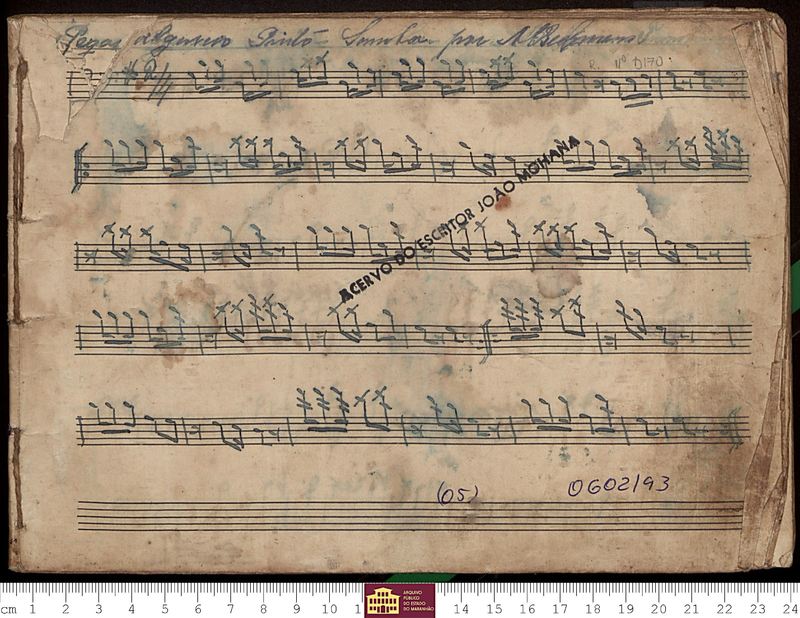 Samba por
R. Nº D170
ACERVO DO ESCRITOR JOÃO MOHANA
(05) 0602/93
cm 1 2 3 4 5 6 7 8 9 10 1 14 15 16 17 18 19 20 21 22 23 24
ARQUIVO
PÚBLICO
DO ESTADO
DO MARANHÃO